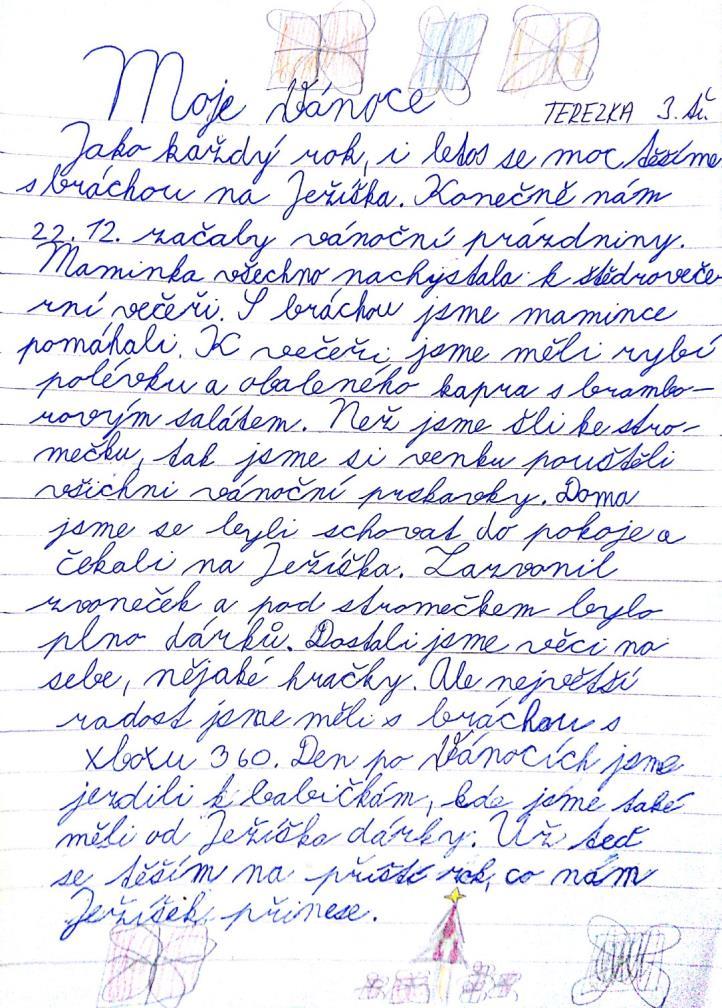 Moje Vánoce
TEREZKA 3. tř.
Jako každý rok, i letos se moc těšíme
s bráchou na Ježíška. Konečně nám
22.12. začaby vánoční prázdniny.
Maminka všechno nachystala k štědroveče
rní večeři. S bráchou jsme mamince
pomáhali. K večeři jsme měli rybí
polévku a obaleného kapra s brambo-
rovým salátem. Než jsme šli ke stro-
mečku, tak jsme si venku pouštěli
všichni vánoční prskavky. Doma
jsme se byli schovat do pokoje a
čekali na Ježíška. Zazvonil
zvoneček a pod stromečkem bylo
plno dárků. Dostali jsme věci na
sebe, nějaké hračky. Ale největší
radost jsme měli s bráchou s
xboxu 360. Den po Vánocích jsme
jezdili k babičkám, kde jsme také
měli od Ježíška dárky. Už teď
se těším na příští rok, co nám
Ježíšek přinese.